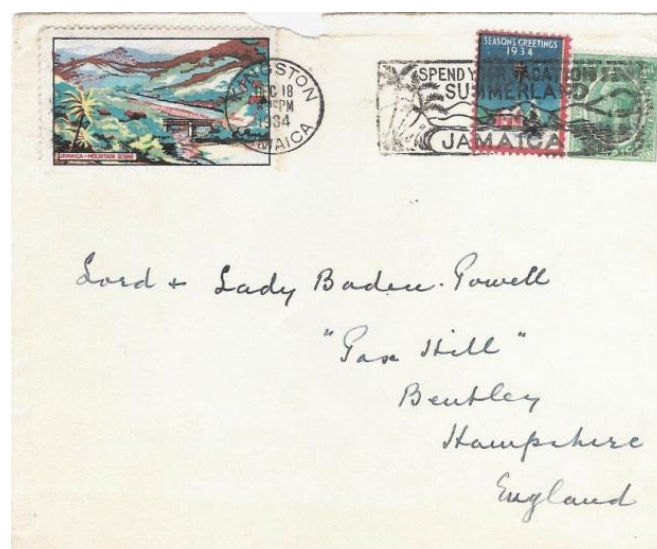 JAMAICA—MOUNTAIN SCENE
KINGSTON
DEC 18
PM
1934
JAMAICA
SEASONS GREETINGS
1934
SPEND YOUR VACATION IN
SUMMERLAND
JAMAICA
Lord + Lady Baden-Powell
"Pax Hill"
Bentley
Hampshire
England